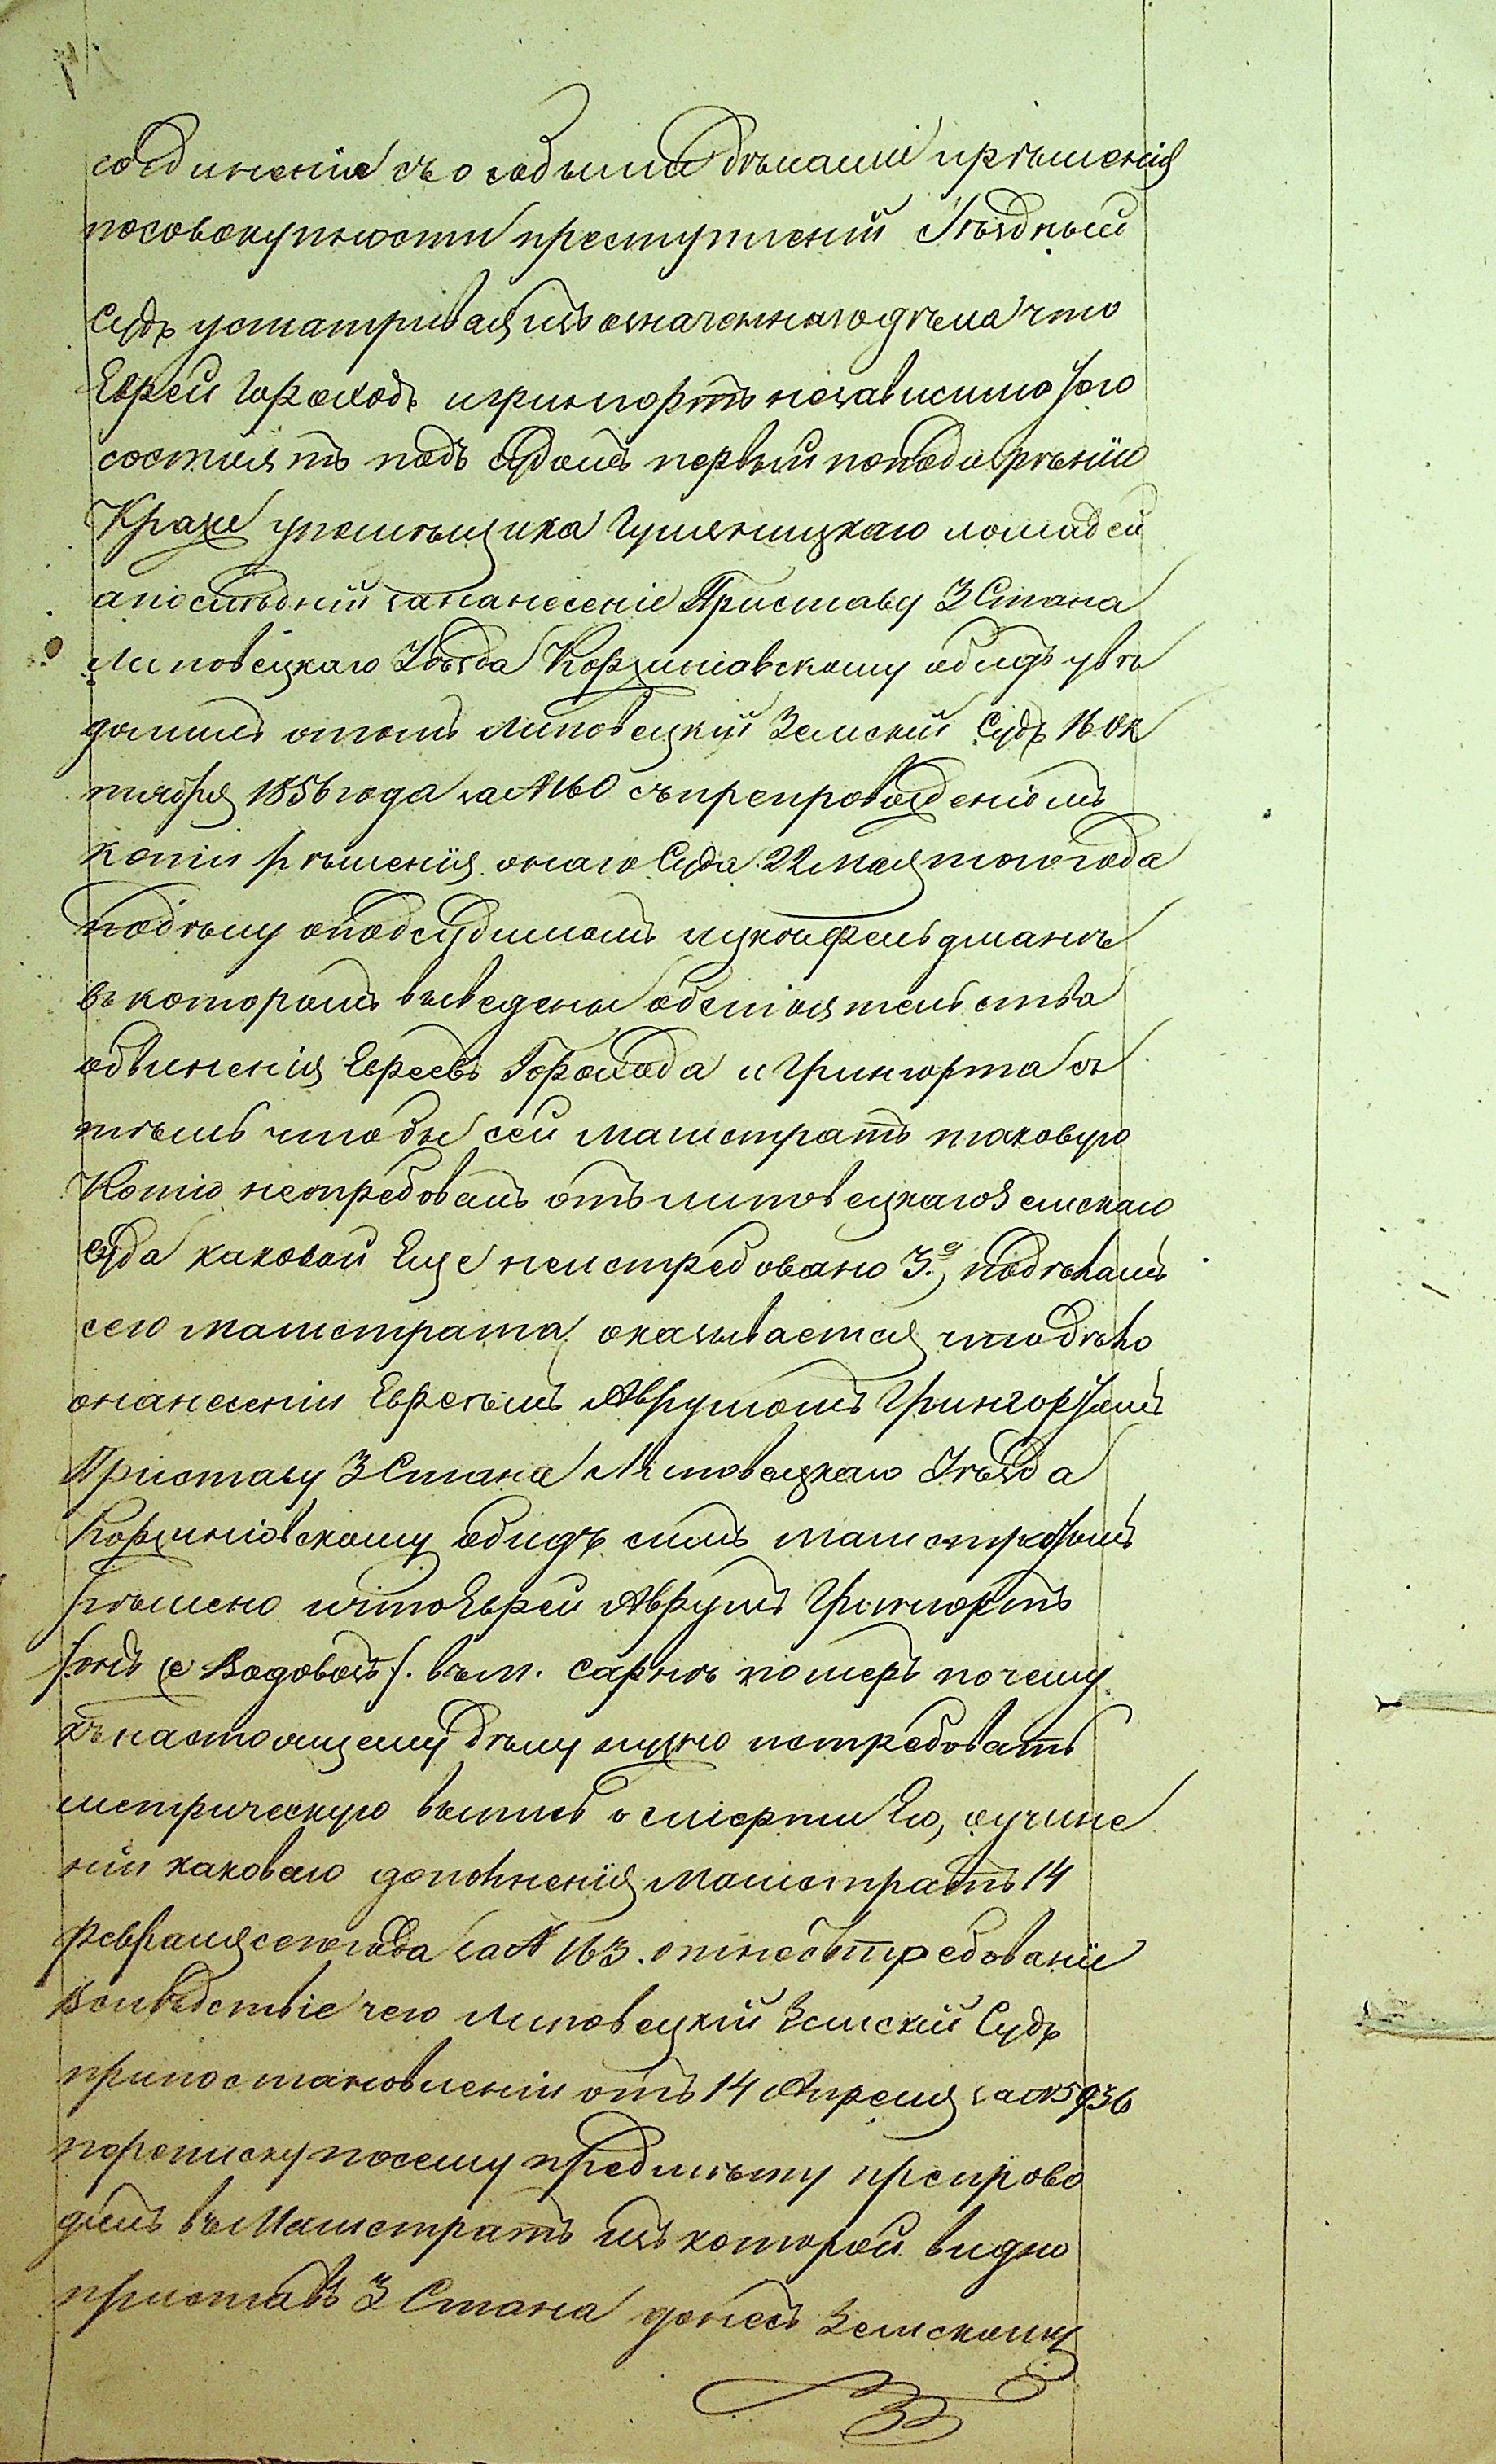 соединеніе съ особыми дѣлами ирѣшенія
посовокупности преступленій Уѣздный
Судъ усматривая изъ означеннаго дѣла что
Еврей Гороходъ игрингортъ независимо того
состоятъ подъ судомъ первый поподозрѣнію
Кражи упомѣщика Гуляницкаго лошадей
апослѣдній зананесеніе Приставу 3 Стана
Липовецкаго Уѣзда Корженіовскому обидъ увѣ
домилъ отомъ Липовецкій Земскій Судъ 16 Ок
тября 1856 года за № 160 съпрепровожденіемъ
копіи рѣшенія онаго Суда 22 мая тогогода
подѣлу оподсудимомъ Фельдманѣ
въ которомъ выведены обстоятельства
обвиненія Евреевъ Горохода и Грингорта съ
тѣмъ чтобы сей Магистратъ таковую
Копію истребовалъ отъ липовецкагоЗемскаго
Суда каковой Еще неистребовано 3.е, подѣламъ
сего магистрата оказывается чтодѣло
онанесеніи Евреемъ Аврумомъ Грингортомъ
Приставу 3 Стана Липовецкаго Уѣзда
Корженіовскому обидъ симъ магистратомъ
рѣшено ичтоЕврей Аврумъ Грингортъ
/онъ же Водовозъ/. въ м. Сарнѣ померъ почему
къ настоящему дѣлу нужно истребовать
метрическую выпись о смерти Его, оучине
ніи каковаго дополненія Магистратъ 14
Февраля сегогода за № 163. отнесъ требованіе
Вслѣдствіе чего Липовецкій Земскій Судъ
припостановленіи отъ 14 Апреля за № 5936
переписку посему предмѣту препрово
дилъ въ Магистратъ изъ которой видно
приставъ 3 Стана донесъ Земскому